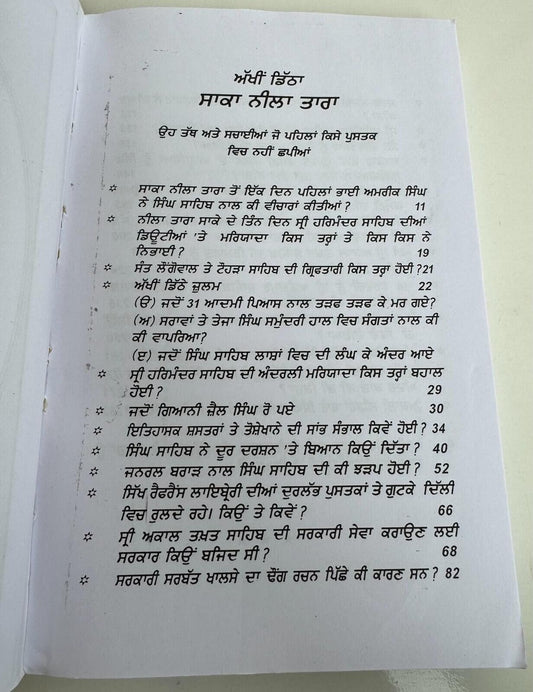 ਅੱਖੀਂ ਡਿੱਠਾ
ਸਾਕਾ ਨੀਲਾ ਤਾਰਾ
ਉਹ ਤੱਥ ਅਤੇ ਸਚਾਈਆਂ ਜੋ ਪਹਿਲਾਂ ਕਿਸੇ ਪੁਸਤਕ
ਵਿਚ ਨਹੀਂ ਛਪੀਆਂ
✩ ਸਾਕਾ ਨੀਲਾ ਤਾਰਾ ਤੋਂ ਇੱਕ ਦਿਨ ਪਹਿਲਾਂ ਭਾਈ ਅਮਰੀਕ ਸਿੰਘ
ਨੇ ਸਿੰਘ ਸਾਹਿਬ ਨਾਲ ਕੀ ਵੀਚਾਰਾਂ ਕੀਤੀਆਂ ? 11
✩ ਨੀਲਾ ਤਾਰਾ ਸਾਕੇ ਦੇ ਤਿੰਨ ਦਿਨ ਸ੍ਰੀ ਹਰਿਮੰਦਰ ਸਾਹਿਬ ਦੀਆਂ
ਡਿਊਟੀਆਂ 'ਤੇ ਮਰਿਯਾਦਾ ਕਿਸ ਤਰ੍ਹਾਂ ਤੇ ਕਿਸ ਕਿਸ ਨੇ
ਨਿਭਾਈ ? 19
✩ ਸੰਤ ਲੌਂਗੋਵਾਲ ਤੇ ਟੌਹੜਾ ਸਾਹਿਬ ਦੀ ਗ੍ਰਿਫਤਾਰੀ ਕਿਸ ਤਰ੍ਹਾ ਹੋਈ ? 21
✩ ਅੱਖੀਂ ਡਿੱਠੇ ਜ਼ੁਲਮ 22
(ੳ) ਜਦੋਂ 31 ਆਦਮੀ ਪਿਆਸ ਨਾਲ ਤੜਫ ਤੜਫ ਕੇ ਮਰ ਗਏ?
(ਅ) ਸਰਾਵਾਂ ਤੇ ਤੇਜਾ ਸਿੰਘ ਸਮੁੰਦਰੀ ਹਾਲ ਵਿਚ ਸੰਗਤਾਂ ਨਾਲ ਕੀ
ਕੀ ਵਾਪਰਿਆ?
(ੲ) ਜਦੋਂ ਸਿੰਘ ਸਾਹਿਬ ਲਾਸ਼ਾਂ ਵਿਚ ਦੀ ਲੰਘ ਕੇ ਅੰਦਰ ਆਏ
✩ ਸ੍ਰੀ ਹਰਿਮੰਦਰ ਸਾਹਿਬ ਦੀ ਅੰਦਰਲੀ ਮਰਿਯਾਦਾ ਕਿਸ ਤਰ੍ਹਾਂ ਬਹਾਲ
ਹੋਈ ? 29
✩ ਜਦੋਂ ਗਿਆਨੀ ਜ਼ੈਲ ਸਿੰਘ ਰੋ ਪਏ 30
✩ ਇਤਿਹਾਸਕ ਸ਼ਸਤਰਾਂ ਤੇ ਤੋਸ਼ੇਖਾਨੇ ਦੀ ਸਾਂਭ ਸੰਭਾਲ ਕਿਵੇਂ ਹੋਈ ? 34
✩ ਸਿੰਘ ਸਾਹਿਬ ਨੇ ਦੂਰ ਦਰਸ਼ਨ 'ਤੇ ਬਿਆਨ ਕਿਉਂ ਦਿੱਤਾ ? 40
✩ ਜਨਰਲ ਬਰਾੜ ਨਾਲ ਸਿੰਘ ਸਾਹਿਬ ਦੀ ਕੀ ਝੜਪ ਹੋਈ ? 52
✩ ਸਿੱਖ ਰੈਫਰੈਂਸ ਲਾਇਬ੍ਰੇਰੀ ਦੀਆਂ ਦੁਰਲੱਭ ਪੁਸਤਕਾਂ ਤੇ ਗੁਟਕੇ ਦਿੱਲੀ
ਵਿਚ ਰੁਲਦੇ ਰਹੇ। ਕਿਉਂ ਤੇ ਕਿਵੇਂ ? 66
✩ ਸ੍ਰੀ ਅਕਾਲ ਤਖ਼ਤ ਸਾਹਿਬ ਦੀ ਸਰਕਾਰੀ ਸੇਵਾ ਕਰਾਉਣ ਲਈ
ਸਰਕਾਰ ਕਿਉਂ ਬਜਿਦ ਸੀ ? 68
✩ ਸਰਕਾਰੀ ਸਰਬੱਤ ਖਾਲਸੇ ਦਾ ਢੌਂਗ ਰਚਨ ਪਿੱਛੇ ਕੀ ਕਾਰਣ ਸਨ ? 82